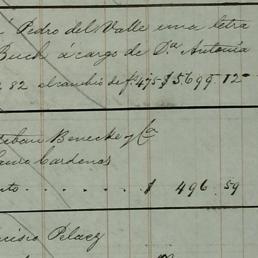 Pedro del Valle una letra
Buch á cargo de D.ª Antonia
82 al cambio de f. 475 $ 5699.12
Esteban Benecke y Ca
Cardenas
. . . . . . $ 496.59
Pelaez